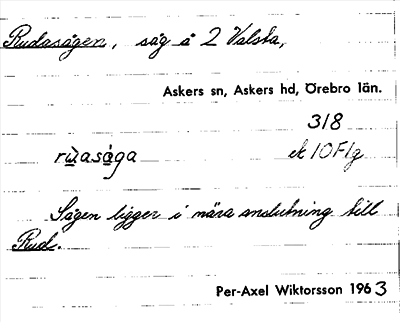 Rudasågen, såg å 2 Valsta,
Askers sn, Askers hd, Örebro län.
318
rùasåga ek 10F1g
Sågen ligger i nära anslutning till
Rud.
Per-Axel Wiktorsson 1963